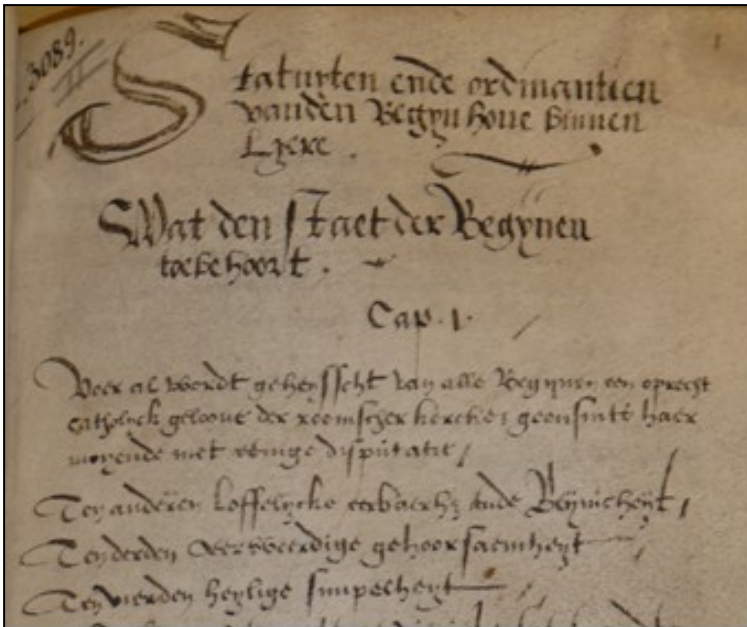 3089.
II
Statuyten ende ordinantien
vanden Begynhove binnen
Lyere.
Wat den staet der Begynen
toebehoort.
Cap. 1.
Voer al wordt geheysscht van alle Begynen een oprecht
catholyck geloove der roomscher kercke, geensints haer
moyende met eenige disputatie,
Ten anderen loffelycke eerbaerh; ende Reynicheyt,
Ten derden eerweerdige gehoorsaemheyt
Ten vierden heylige simpelheyt